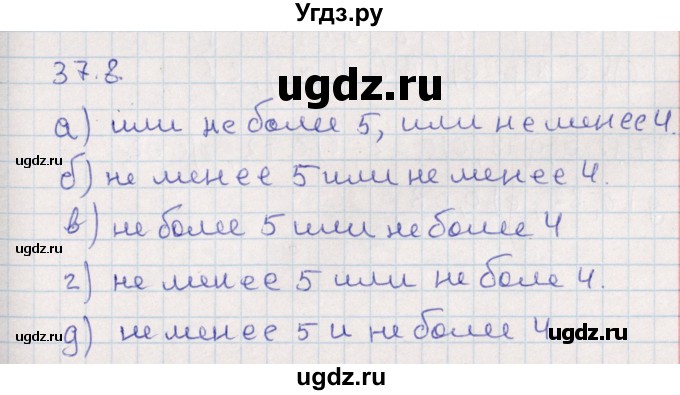 Угдз.ру
37.8.
ugdz.ru
а) или не более 5, или не менее 4.
ugdz.ru
б) не менее 5 или не менее 4.
в) не более 5 или не более 4
ugdz.ru
г) не менее 5 или не боле 4.
д) не менее 5 и не более 4
ugdz.ru
ugdz.ru
ugdz.ru